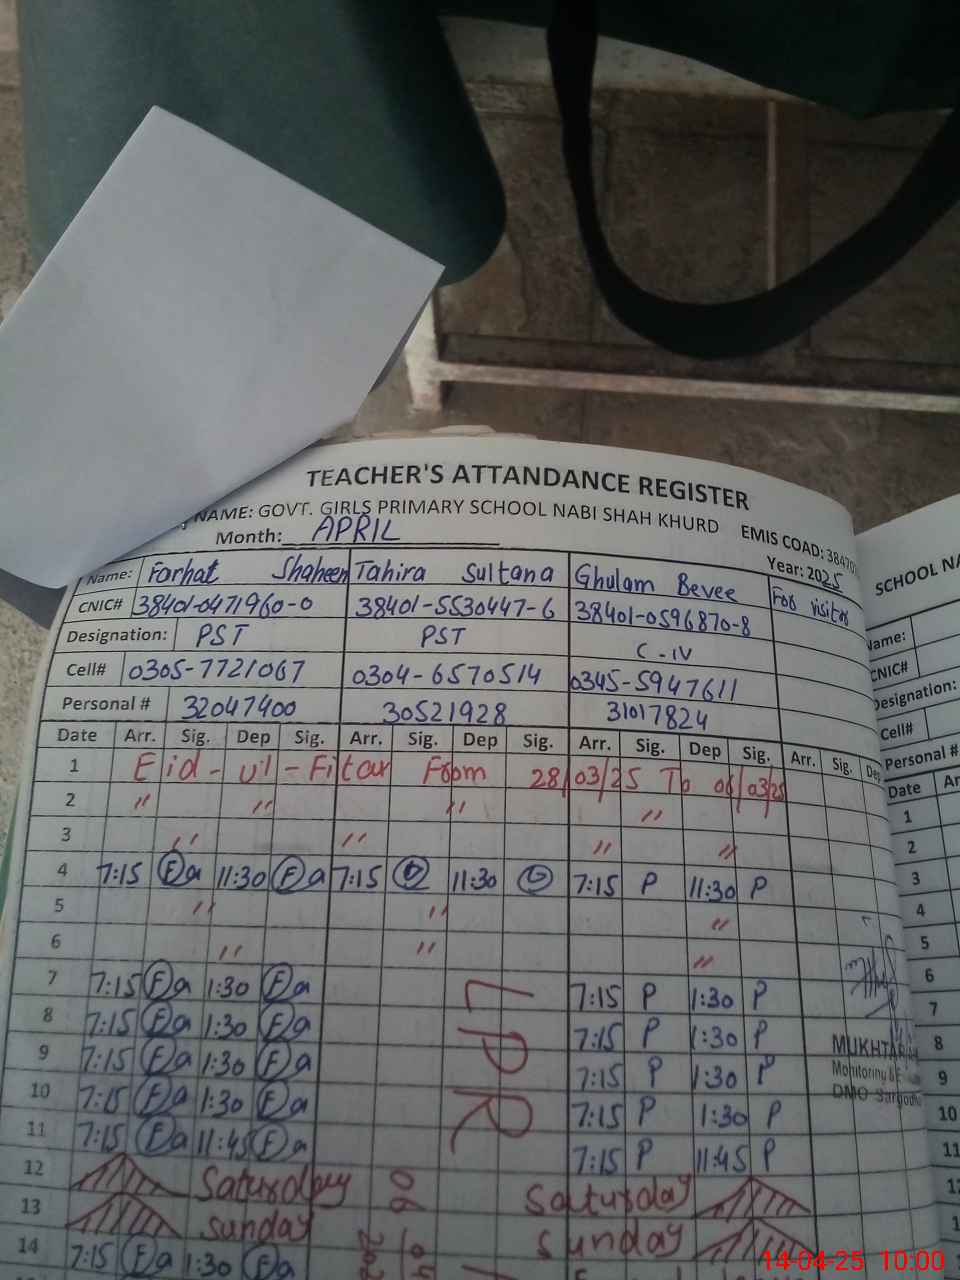 TEACHER'S ATTANDANCE REGISTER
NAME: GOVT. GIRLS PRIMARY SCHOOL NABI SHAH KHURD EMIS COAD: 38470
Month: APRIL Year: 2025
Name: Farhat Shaheen Tahira Sultana Ghulam Bevee For visitor
CNIC# 38401-0471960-0 38401-5530447-6 38401-0596870-8
Designation: PST PST C-IV
Cell# 0305-7721067 0304-6570514 0345-5947611
Personal # 32047400 30521928 31017824
Date Arr. Sig. Dep Sig. Arr. Sig. Dep Sig. Arr. Sig. Dep Sig. Arr. Sig. Dep
1 Eid-ul-Fitar From 28/03/25 To 06/03/25
2 〃 〃 〃 〃
3 〃 〃 〃 〃
4 7:15 Fa 11:30 Fa 7:15 11:30 7:15 P 11:30 P
5 〃 〃 〃
6 〃 〃 〃
7 7:15 Fa 1:30 Fa 7:15 P 1:30 P
8 7:15 Fa 1:30 Fa 7:15 P 1:30 P
9 7:15 Fa 1:30 Fa 7:15 P 1:30 P
10 7:15 Fa 1:30 Fa 7:15 P 1:30 P
11 7:15 Fa 11:45 Fa 7:15 P 11:45 P
LPR
12 Saturday Saturday
13 Sunday Sunday
14 7:15 Fa 1:30 Fa
06
MUKHTAR
Monitoring & E
DMO Sargodha
SCHOOL NA
Name:
CNIC#
Designation:
Cell#
Personal #
Date Ar
1
2
3
4
5
6
7
8
9
10
11
12
14-04-25 10:00